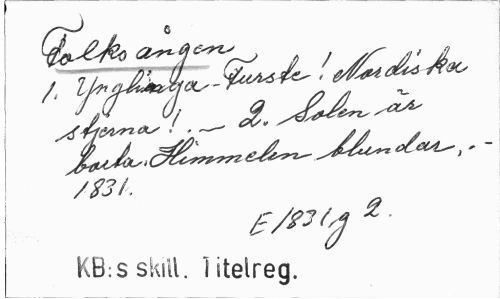 Folksången
1. Ynglinga-Furste! Nordiska
stjerna! . — 2. Solen är
borta. Himmelen blundar, . -
1831.
E 1831, g 2.
KB:s skill. Titelreg.